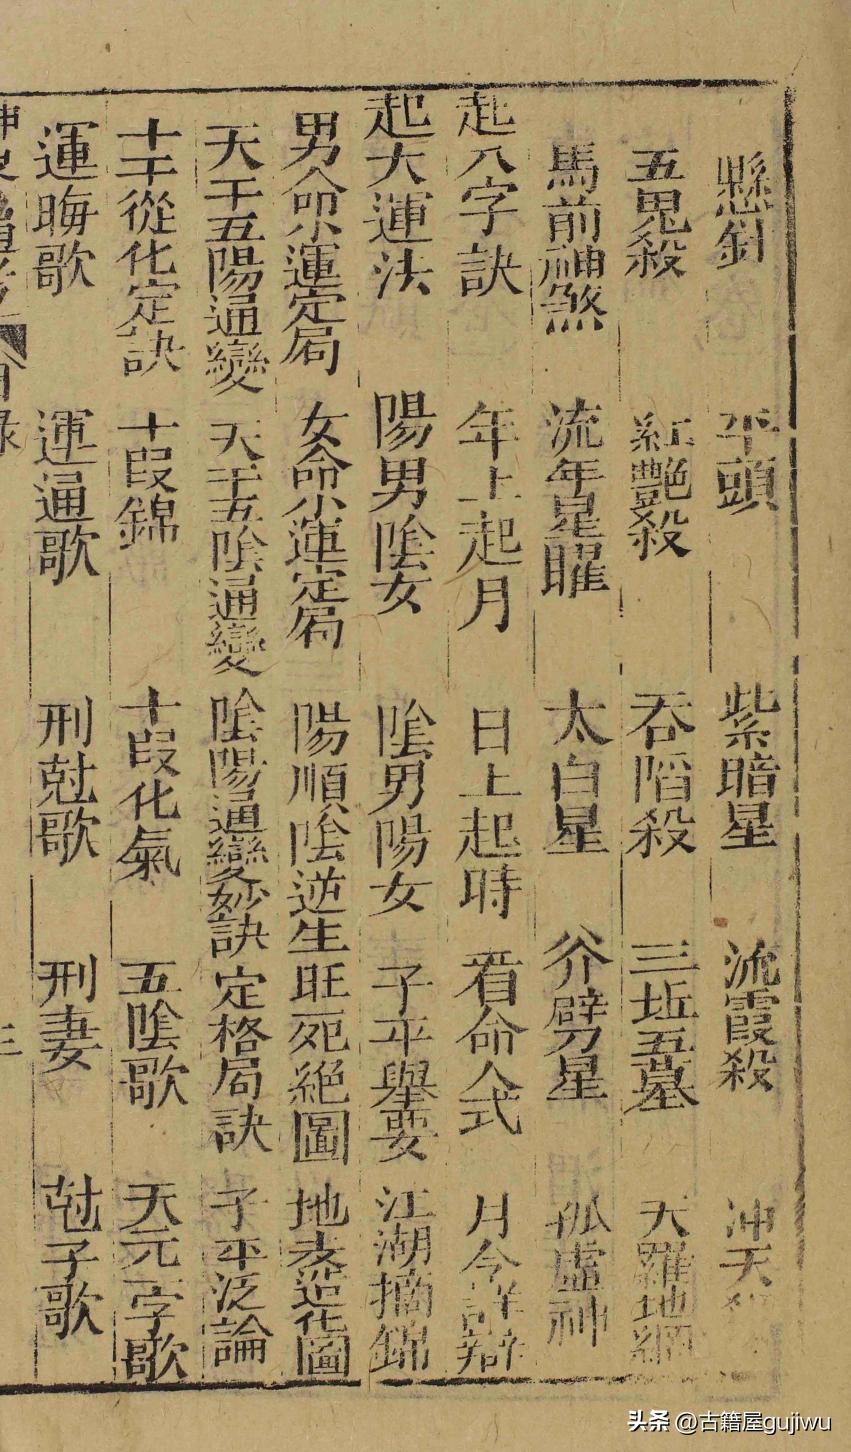 懸針 平頭 紫暗星 流霞殺 冲天殺
五鬼殺 紅艷殺 吞陷殺 三坵五墓 天羅地網
馬前神煞 流年星曜 太白星 斧劈星 孤虛神
起八字訣 年上起月 日上起時 看命入式 月令詳辯
起大運法 陽男陰女 陰男陽女 子平舉要 江湖摘錦
男命小運定局 女命小運定局 陽順陰逆生旺死絕圖 地支造化圖
天干五陽通變 天干五陰通變 陰陽通變妙訣 定格局訣 子平泛論
十干從化定訣 十段錦 十段化氣 五陰歌 天元一字歌
運晦歌 運通歌 刑尅歌 刑妻 尅子歌
目錄 三
头条 @古籍屋gujiwu